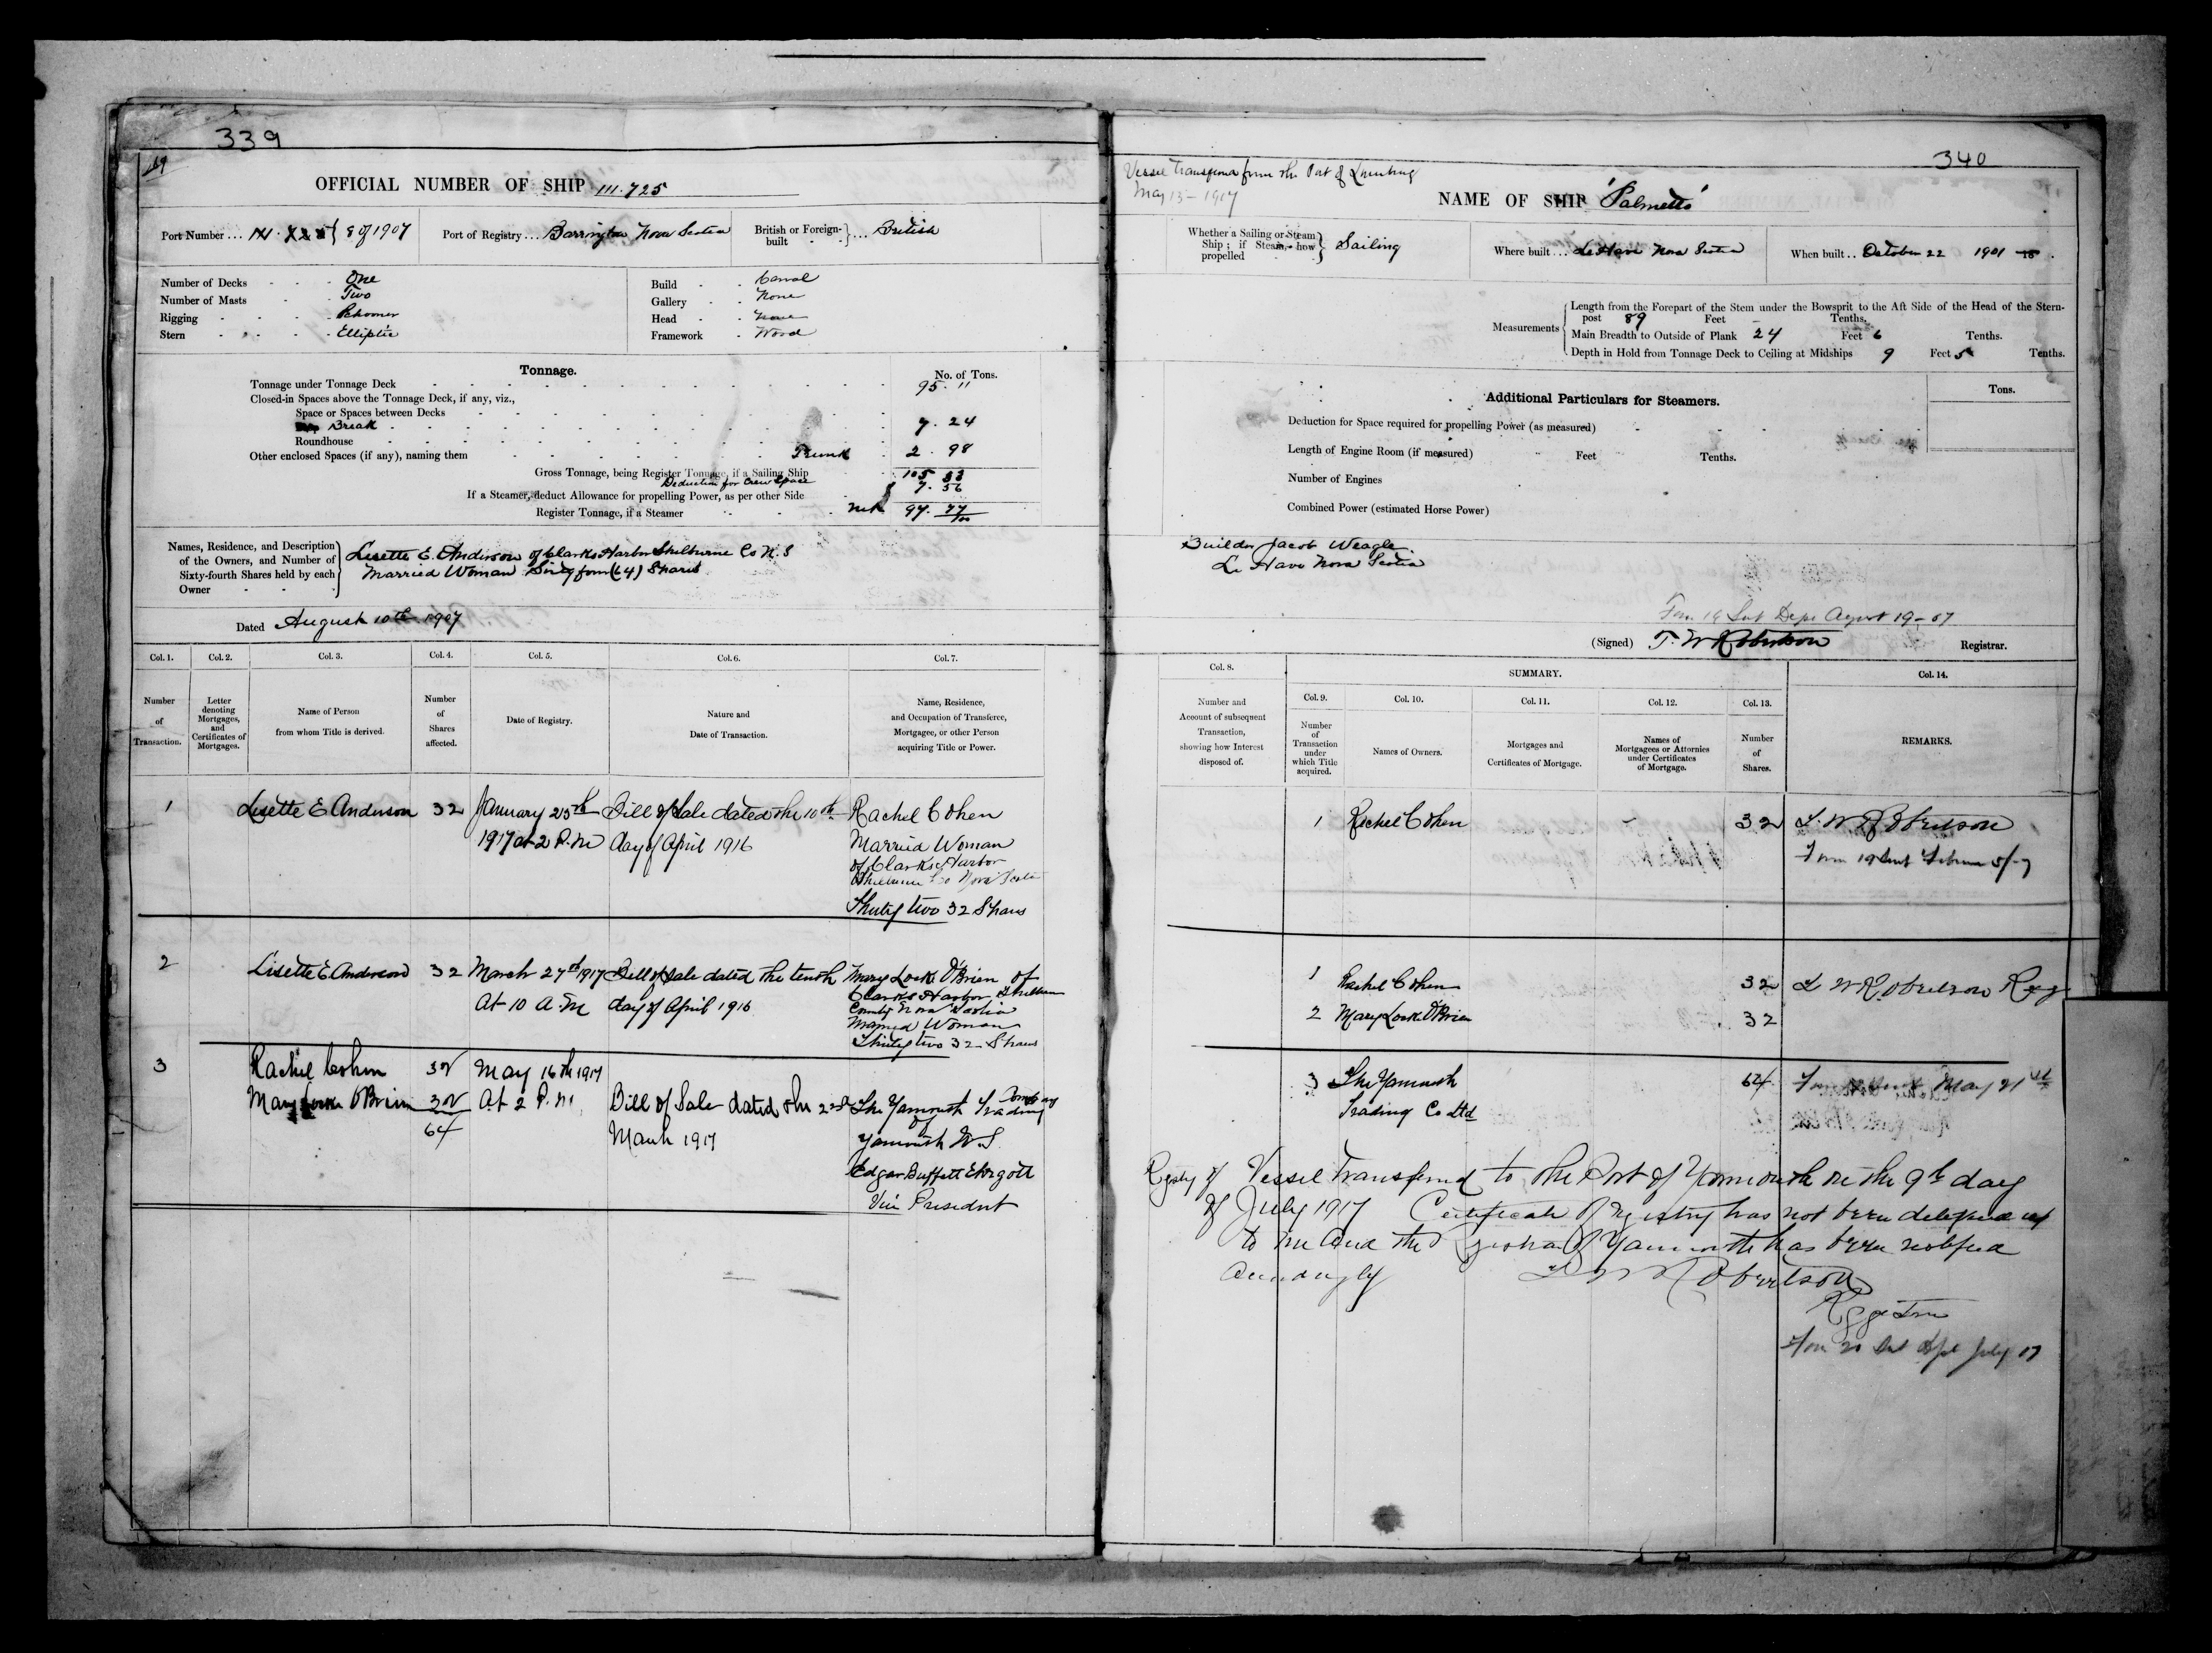 339
OFFICIAL NUMBER OF SHIP 111.725
Port Number ... 8 of 1907
Port of Registry ... Barrington Nova Scotia
British or Foreign-built } ... British
Number of Decks - - - One
Number of Masts - - Two
Rigging - - - - Schooner
Stern - - - - Elliptic
Build - - Carval
Gallery - - None
Head - - None
Framework - Wood
Tonnage.
No. of Tons.
Tonnage under Tonnage Deck 95. "
Closed-in Spaces above the Tonnage Deck, if any, viz.,
Space or Spaces between Decks
Break 7. 24
Roundhouse
Other enclosed Spaces (if any), naming them Trunk 2. 98
Gross Tonnage, being Register Tonnage, if a Sailing Ship 105 33
Deduction for Crew Space 7. 56
If a Steamer, deduct Allowance for propelling Power, as per other Side
Register Tonnage, if a Steamer 97. 77/100
Names, Residence, and Description of the Owners, and Number of Sixty-fourth Shares held by each Owner
Lisette E. Anderson of Clarks Harbor Shelburne Co N.S
Married Woman Sixty four (64) Shares
Dated August 10th 1907
Col. 1. Col. 2. Col. 3. Col. 4. Col. 5. Col. 6. Col. 7.
Number of Transaction.
Letter denoting Mortgages, and Certificates of Mortgages.
Name of Person from whom Title is derived.
Number of Shares affected.
Date of Registry.
Nature and Date of Transaction.
Name, Residence, and Occupation of Transferee, Mortgagee, or other Person acquiring Title or Power.
1 Lisette E Anderson 32 January 25th Bill of Sale dated the 10th Rachel Cohen
1917 at 2 P.M day of April 1916 Married Woman
of Clarks Harbor
Shelburne Co Nova Scotia
Thirty two 32 Shares
2 Lisette E Anderson 32 March 27th 1917 Bill of Sale dated the tenth Mary Locke O'Brien of
At 10 A.M day of April 1916 Clarks Harbor Shelburne
County Nova Scotia
Married Woman
Thirty two 32 Shares
3 Rachel Cohen 32 May 16th 1917
Mary Locke O'Brien 32 At 2 P.M. Bill of Sale dated the 2nd The Yarmouth Trading Company
64 of
March 1917 Yarmouth N.S.
Edgar Buffett
Vice President
340
Vessel Transferred from the Port of Lunenburg
May 13 - 1917
NAME OF SHIP 'Palmetto'
Whether a Sailing or Steam Ship; if Steam, how propelled } Sailing
Where built ... LeHave Nova Scotia
When built .. October 22 1901
Measurements
Length from the Forepart of the Stem under the Bowsprit to the Aft Side of the Head of the Stern-
post 89 Feet Tenths.
Main Breadth to Outside of Plank 24 Feet 6 Tenths.
Depth in Hold from Tonnage Deck to Ceiling at Midships 9 Feet 5 Tenths.
Additional Particulars for Steamers.
Tons.
Deduction for Space required for propelling Power (as measured)
Length of Engine Room (if measured) Feet Tenths.
Number of Engines
Combined Power (estimated Horse Power)
Builder Jacob Weagle
Le Have Nova Scotia
Form 19 Sent Dept August 19-07
(Signed) T. W Robertson Registrar.
Col. 8. SUMMARY. Col. 14.
Col. 9. Col. 10. Col. 11. Col. 12. Col. 13.
Number and Account of subsequent Transaction, showing how Interest disposed of.
Number of Transaction under which Title acquired.
Names of Owners.
Mortgages and Certificates of Mortgage.
Names of Mortgagees or Attornies under Certificates of Mortgage.
Number of Shares.
REMARKS.
1 Rachel Cohen 32 T. W Robertson
Form 19 Sent
1 Rachel Cohen 32 T W Robertson Reg
2 Mary Locke O'Brien 32
3 The Yarmouth 64 Form Sent May 21st
Trading Co Ltd
Registry of Vessel Transferred to the Port of Yarmouth on the 9th day
of July 1917 Certificate of Registry has not been delivered up
to me and the Registrar of Yarmouth has been notified
accordingly T W Robertson
Registrar
Form 20 Sent Dept July 17